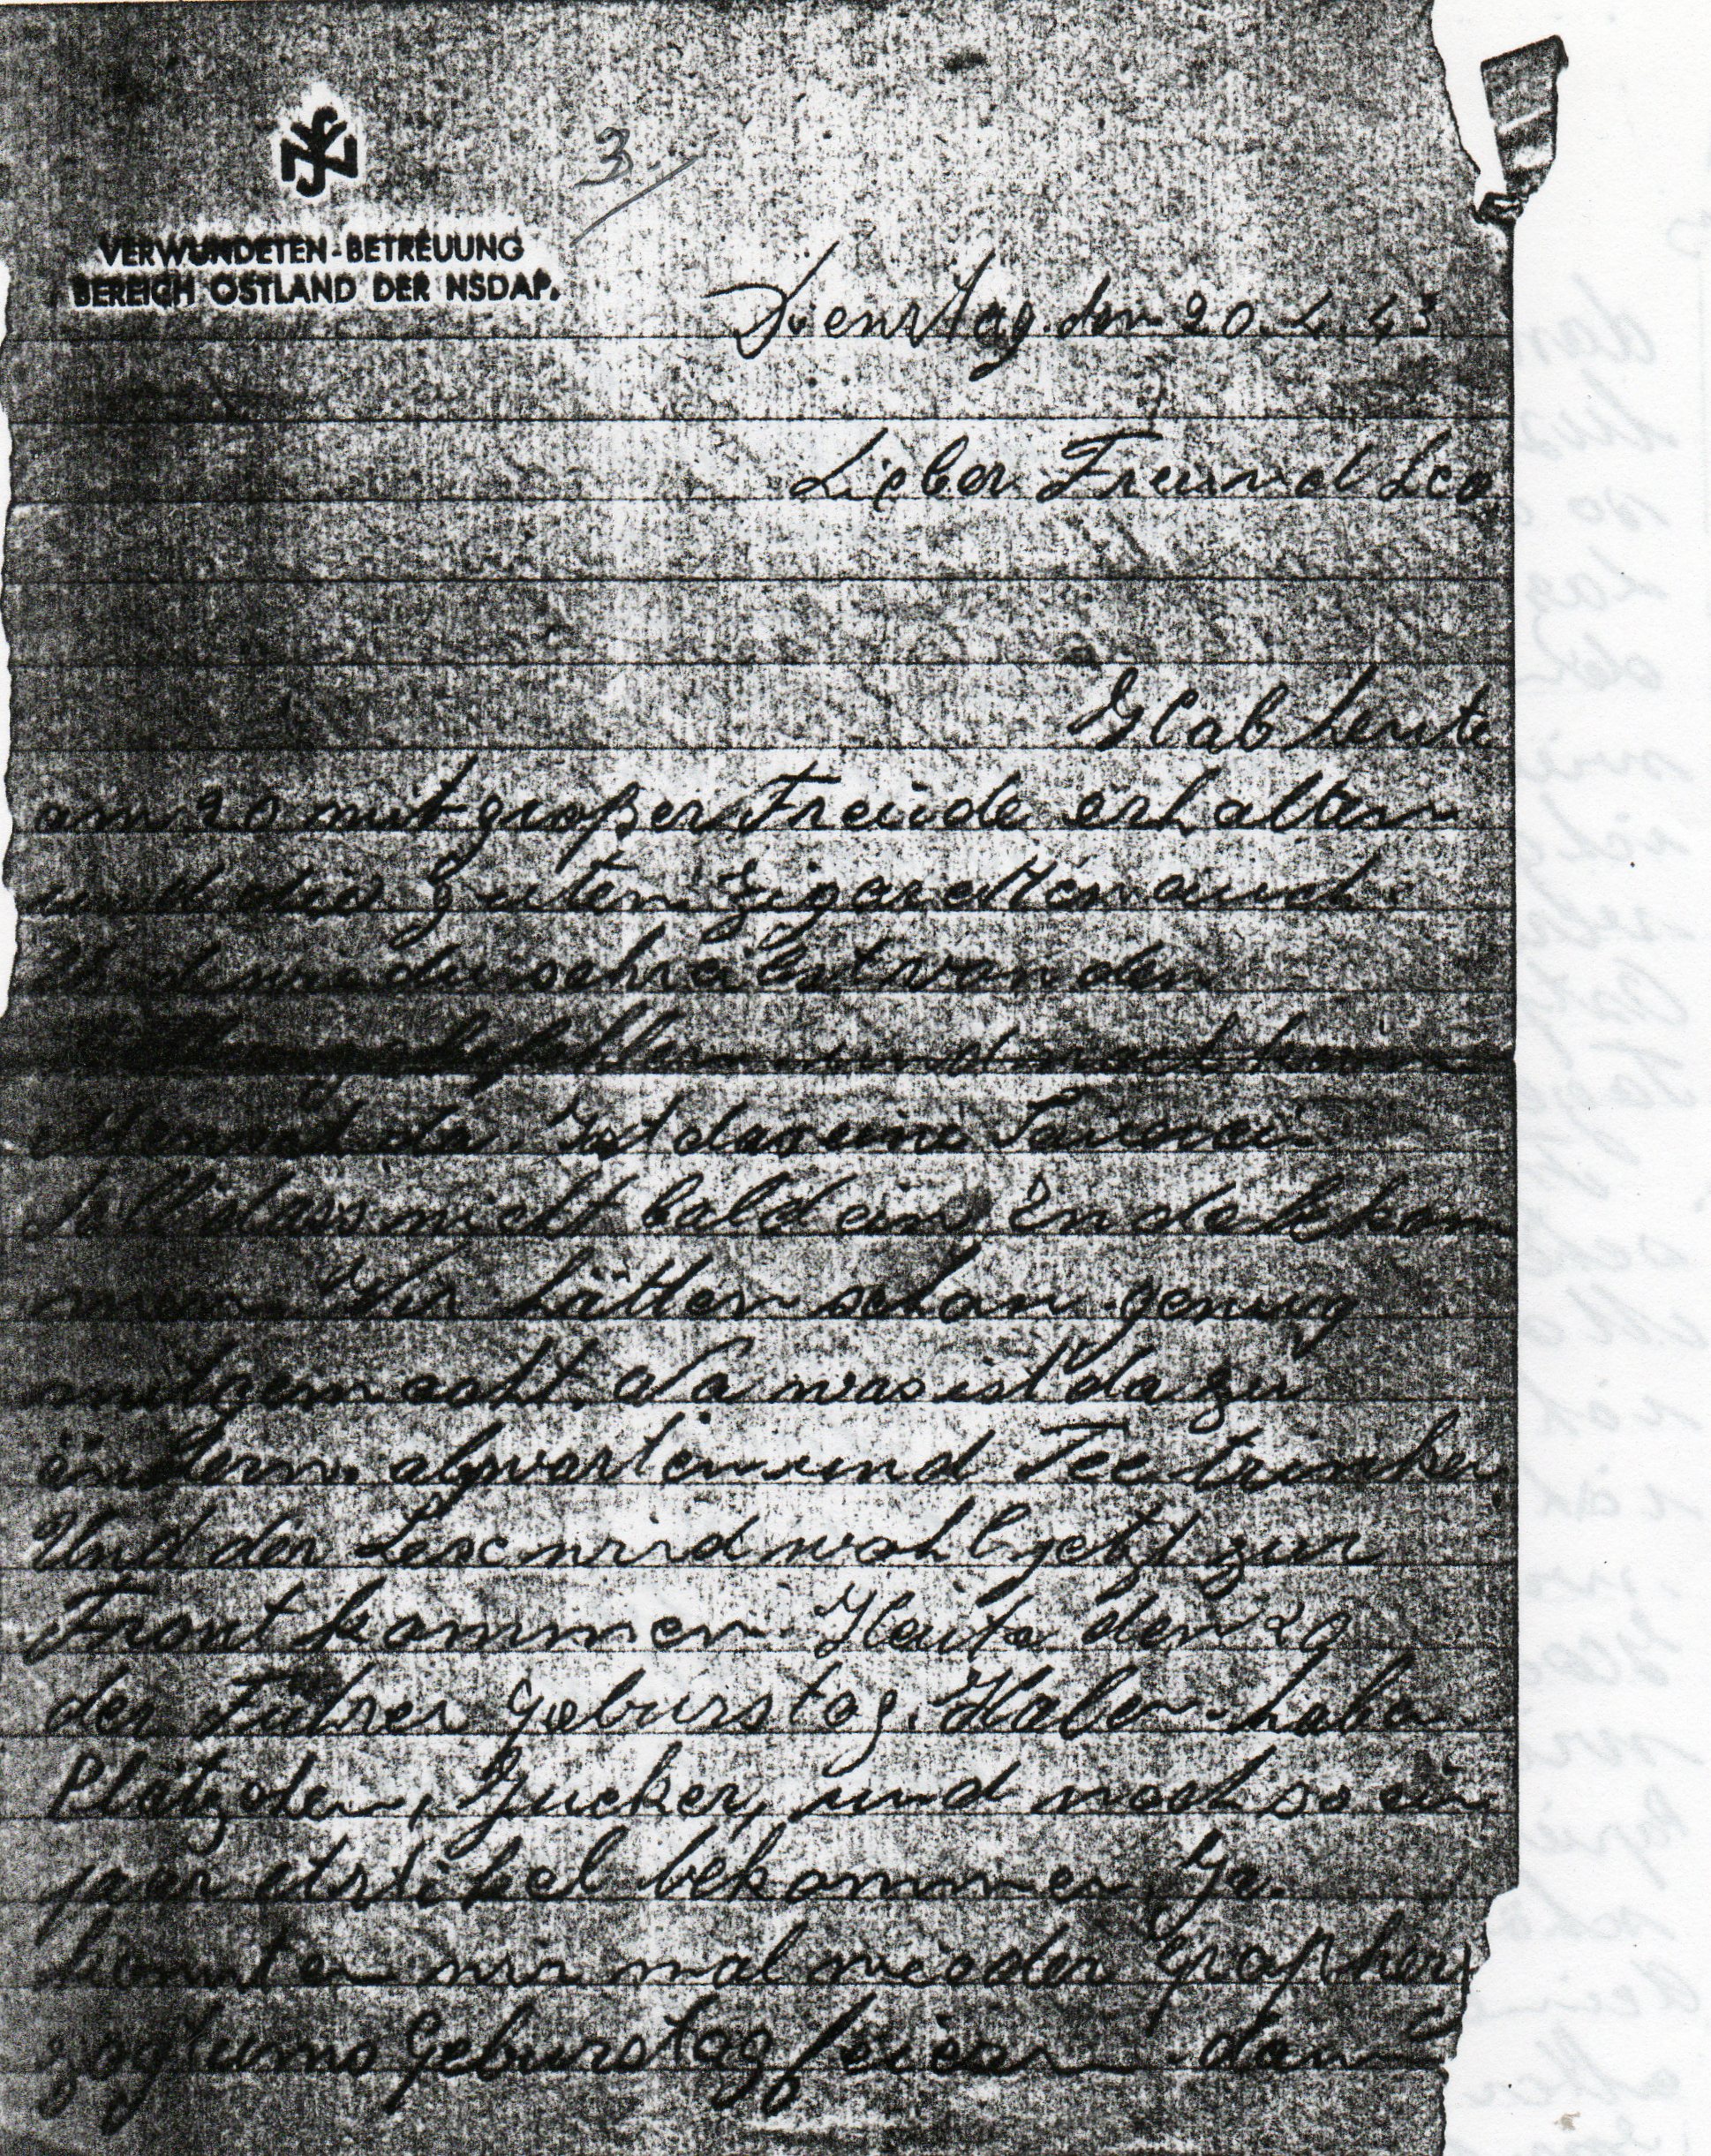 3.
VERWUNDETEN-BETREUUNG
BEREICH OSTLAND DER NSDAP.
Dienstag den 20.4.43
Lieber Freund Leo
Hab heute
am 20 mit großer Freude erhalten
und die guten Zigaretten auch.
du schreibst von den
und noch
da. Ist das eine
Soll dass nicht bald ein Ende bekom
men. Wir hätten schon genug
mitgemacht. Na was ist da zu
ändern. abwarten und Tee trinken
Und der wird wohl jetzt zur
Front kommen. Heute den 20
der Führer Geburstag. Haben haben
Plätzchen, Zucker, und noch so ein
paar Artikel bekommen. Ja.
konnten wir mal wieder
Geburstag feiern dan